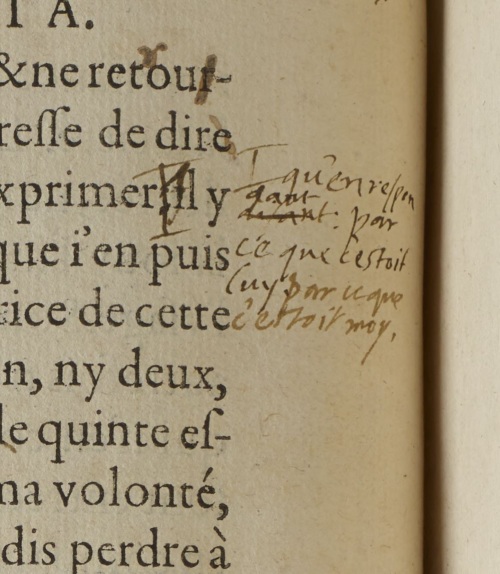 A.
&ne retour-
reſſe de dire
xprimer il y
que i'en puis
rice de cette
n, ny deux,
le quinte eſ-
ma volonté,
dis perdre à
qu'en respon
dant : par
ce que c'estoit
luy par ce que
c'estoit moy.